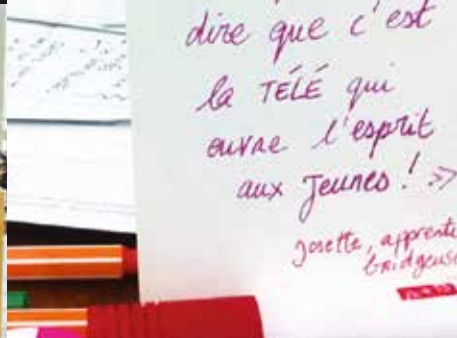 dire que c'est
la TÉLÉ qui
ouvre l'esprit
aux Jeunes ! »
Josette, apprentie
bridgeuse